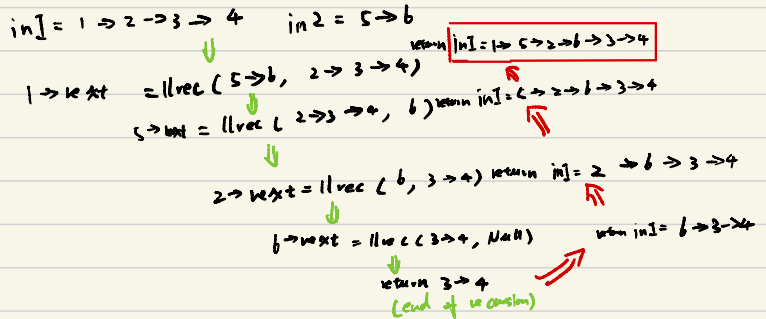 in1 = 1 → 2 → 3 → 4 in2 = 5 → 6
return in1 = 1 → 5 → 2 → 6 → 3 → 4
1 → next = llrec ( 5 → 6, 2 → 3 → 4 )
return in1 = 5 → 2 → 6 → 3 → 4
5 → next = llrec ( 2 → 3 → 4, 6 )
2 → next = llrec ( 6, 3 → 4 ) return in1 = 2 → 6 → 3 → 4
6 → next = llrec ( 3 → 4, Null ) return in1 = 6 → 3 → 4
return 3 → 4
(end of recursion)